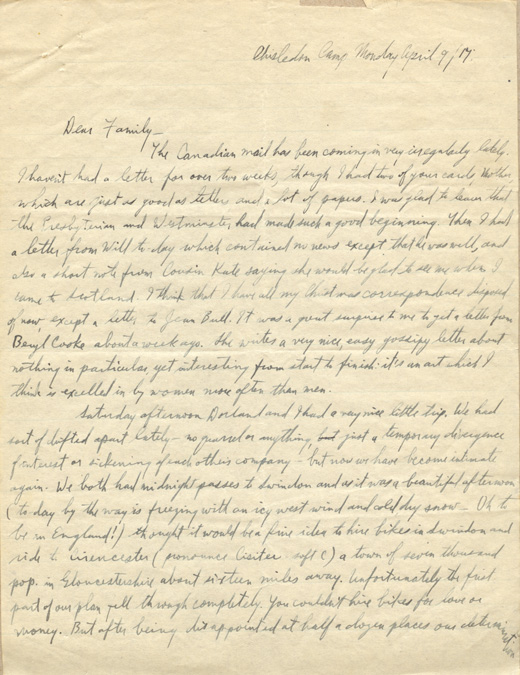 Chisledon Camp Monday April 9/17.
Dear Family—
The Canadian mail has been coming in very irregularly lately.
I haven't had a letter for over two weeks, though I had two of your cards Mother
which are just as good as letters and a lot of papers. I was glad to learn that
the Presbyterian and Westminster had made such a good beginning. Then I had
a letter from Will to-day which contained no news except that he was well, and
also a short note from Cousin Kate saying she would be glad to see me when I
came to Scotland. I think that I have all my Christmas correspondence disposed
of now except a letter to Jean Bull. It was a great surprise to me to get a letter from
Beryl Cooke about a week ago. She writes a very nice, easy gossipy letter about
nothing in particular, yet interesting from start to finish: it's an art which I
think is excelled in by women more often than men.
Saturday afternoon Dorland and I had a very nice little trip. We had
sort of drifted apart lately – no quarrel or anything, but just a temporary divergence
of interest or sickening of each others company – but now we have become intimate
again. We both had midnight passes to Swindon and as it was a beautiful afternoon
(to-day by the way is freezing with an icy west wind and cold dry snow — Oh to
be in England!) thought it would be a fine idea to hire bikes in Swindon and
ride to Cirencester (pronounce Cisiter soft C) a town of seven thousand
pop. in Gloucestershire about sixteen miles away. Unfortunately the first
part of our plan fell through completely. You couldn't hire bikes for love or
money. But after being disappointed at half a dozen places our determination